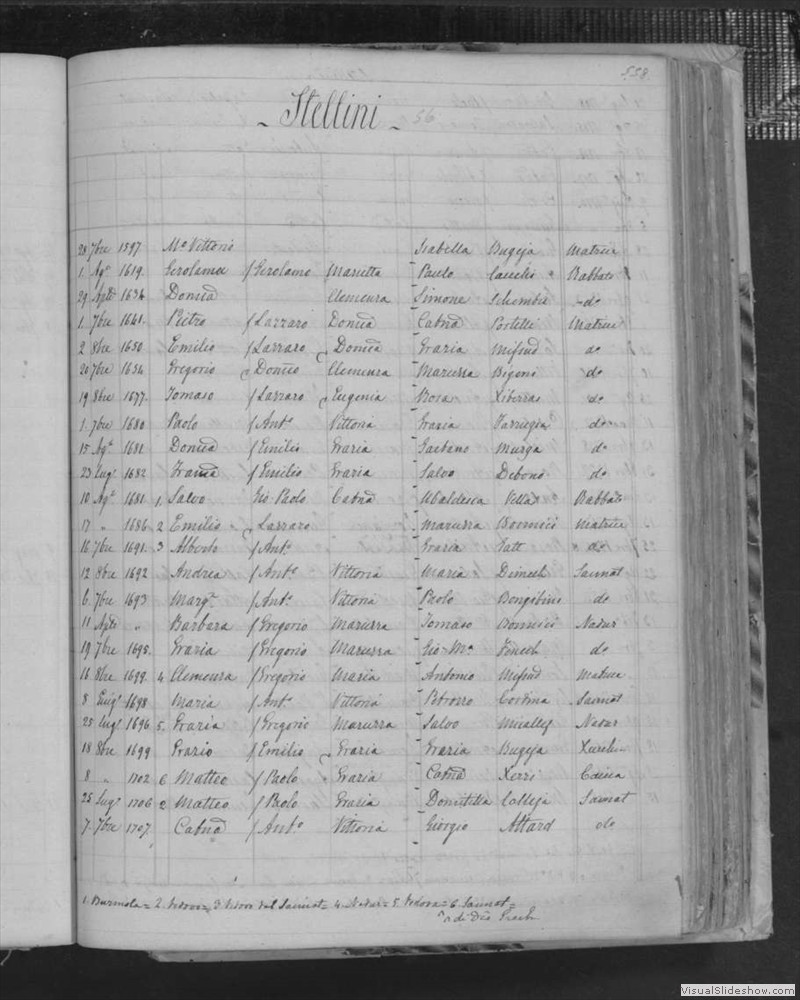 558.
- Stellini - 56
28 7bre 1597 Mº Vittorio Isabella Bugeja Matrice
1. Agº 1619. Gerolama f Gerolamo Marietta Paulo Rabbato
29 1634 Domca Clemenza Simone Schembri do
1. 7bre 1641. Pietro f Lazzaro Domca Catna Portelli Matrice
2 8bre 1650 Emilio f Lazzaro Domca Grazia Mifsud do
20 7bre 1654 Gregorio Domco Clemenza Maruzza Bigeni do
19 8bre 1677. Tomaso f Lazzaro Eugenia Rosa Xiberras do
1. 7bre 1680 Paolo f Antº Vittoria Grazia Farrugia do
15 Agº 1681 Domca f Emilio Grazia Gaetano Murga do
23 Lugº 1682 Franca f Emilio Grazia Salvo Debono do
10 Agº 1681 1. Salvo Gio Paolo Catna Ubaldesca Vella Rabbato
17 " 1686 2 Emilio f Lazzaro Maruzza Bonnici Matrice
16 7bre 1691. 3 Alberto f Antº Grazia Tatt do
12 8bre 1692 Andrea f Antº Vittoria Maria Dimech Sannat
6. 7bre 1693 Margª f Antº Vittoria Paolo Bongibino do
11 " Barbara f Gregorio Maruzza Tomaso Bonnici Nadur
19 7bre 1695. Grazia f Gregorio Maruzza Gio Mª Fenech do
16 8bre 1699. 4 Clemenza f Gregorio Maria Antonio Mifsud Matrice
8 1698 Maria f Antº Vittoria Petrozzo Cordina Sannat
25 Lugº 1696 5. Grazia f Gregorio Maruzza Salvo Micallef Nadur
18 8bre 1699 Grazio f Emilio Grazia Grazia Bugeja
8 " 1702 6 Matteo f Paolo Grazia Catna Xerri Caccia
25 Lugº 1706 2 Matteo f Paolo Grazia Domitilla Calleja Sannat
7. 7bre 1707. Catna f Antº Vittoria Giorgio Attard do
1. Burmola = 2. Vedovo = 3 Vedovo dal Sannat = 4. Nadur = 5. Vedova = 6. Sannat =
VisualSlideshow.com